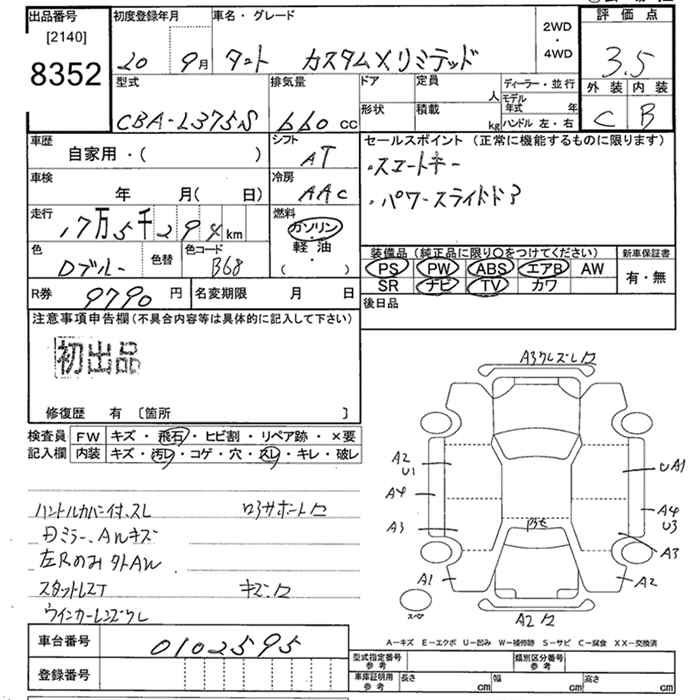 出品番号
[2140]
8352
初度登録年月
20 9月
車名・グレード
タント カスタムXリミテッド
2WD
・
4WD
評価点
3.5
外装 内装
C B
型式
CBA-L375S
排気量
660 cc
ドア
定員
人
形状
積載
kg
ディーラー・並行
モデル年式 年
ハンドル 左・右
車歴
自家用・( )
シフト
AT
車検
年 月( 日)
冷房
AAC
走行
17万5千294km
燃料
ガソリン
・
軽油
( )
色
Dブルー
色替
色コード
B68
R券
9790 円
名変期限 月 日
セールスポイント(正常に機能するものに限ります)
・スマートキー
・パワースライドドア
装備品(純正品に限り〇をつけてください)
PS PW ABS エアB AW
SR ナビ TV カワ
新車保証書
有・無
後日品
注意事項申告欄(不具合内容等は具体的に記入して下さい)
初出品
修復歴 有 〔箇所 〕
検査員記入欄
FW キズ・飛石・ヒビ割・リペア跡・×要
内装 キズ・汚レ・コゲ・穴・スレ・キレ・破レ
ハンドルカバー付、スレ
ロアサポート
ミラー、AWキズ
左Rのみ社外AW
スタットレスT
キズ
ウインカーレンズワレ
A3
A2
U1
A4
A3
A1
UA1
A4
U3
A3
A2
スペア
A2
A-キズ E-エクボ U-凹み W-補修跡 S-サビ C-腐食 XX-交換済
車台番号
0102595
登録番号
型式指定番号 参考
類別区分番号 参考
車庫証明用 参考
長さ cm
幅 cm
高さ cm